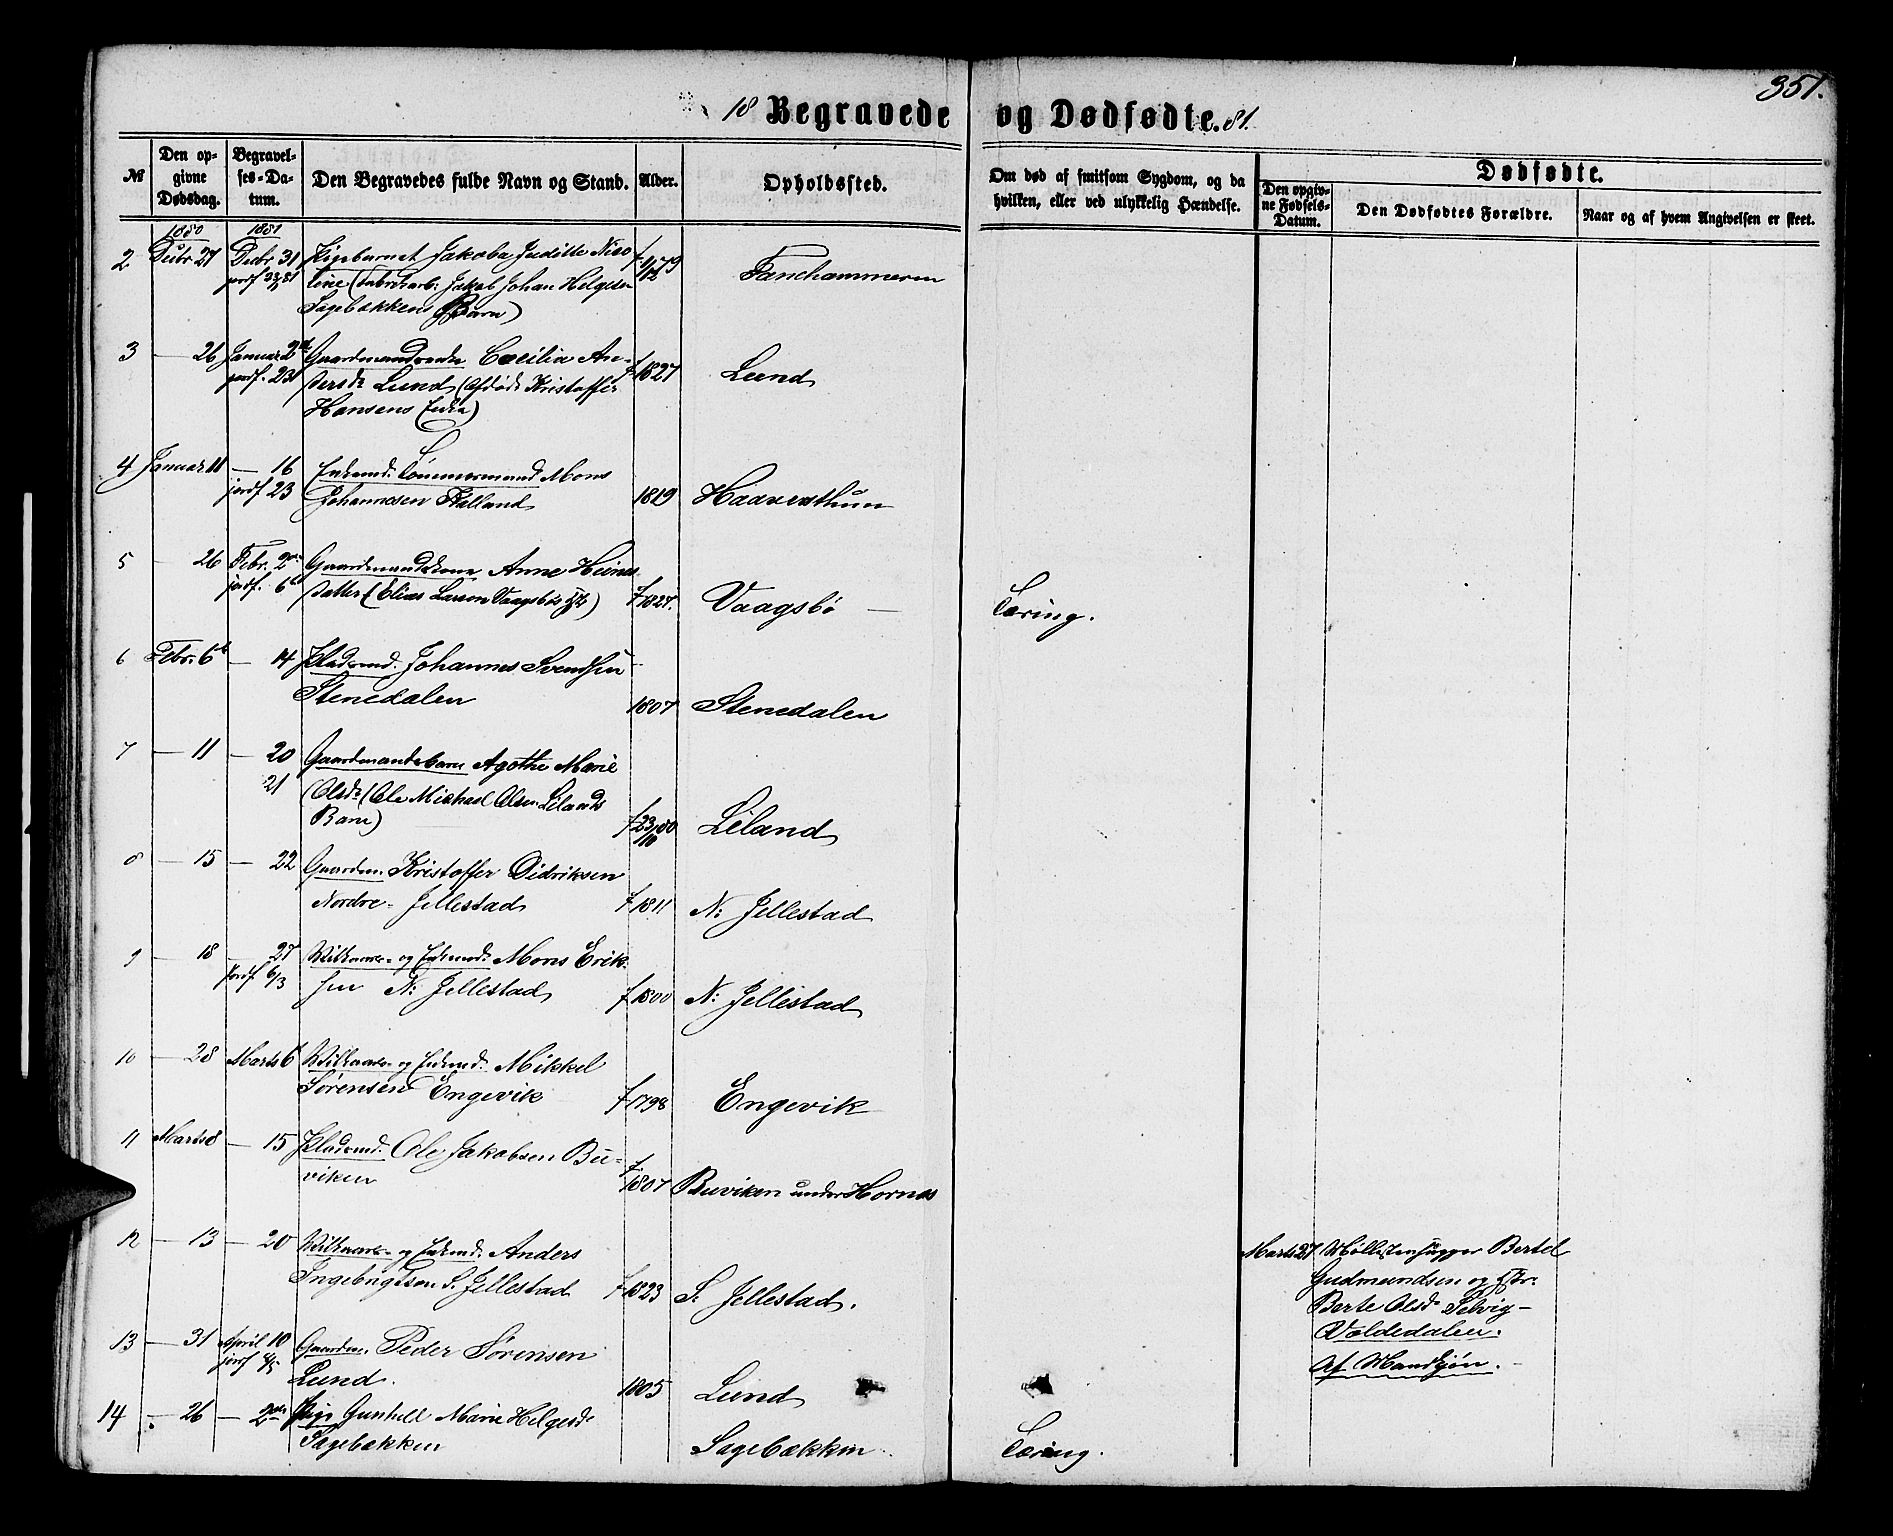 351.
18 Begravede og Dødfødte. 81.
№
Den op-
givne
Dødsdag.
Begravel-
ses-Da-
tum.
Den Begravedes fulde Navn og Stand.
Alder.
Opholdssted.
Om død af smitsom Sygdom, og da
hvilken, eller ved ulykkelig Hændelse.
Dødfødte.
Den opgiv-
ne Fødsels-
Datum.
Den Dødfødtes Forældre.
Naar og af hvem Angivelsen er skeet.
1880 1881
2 Decbr 27 Decbr 31 Pigebarnet Jakoba Juditte Nico
line (Jakob Johan Helgesen
Sagebakkens Barn)
Fanehammeren
3 — 26 Januar 2 Gaardmandsenke Cæcilia An-
jordf. 23 dersdr Lund (Afdøde Kristoffer f 1827 Lund
Hansens Enke)
4 Januar 11 — 16 Enkemd. Tømmermand Mons
jordf 23 Johannesen Kalland 1819 Haavardthun
5 — 26 Febr. 2 Gaardmandskone Anne Heines
jordf. 6 datter (Elias Larsen Vaagsbøs ) f 1827. Vaagsbø — Tæring.
6 Febr. 6 — 14 Pladsmd. Johannes Svendsen
Stenedalen 1807 Stenedalen
7 — 11 — 20 Gaardmandsbarn Agathe Marie
21 Olsdr (Ole Michael Olsen Lilands
Barn) f 23/10 80 Liland
8 — 15 — 22 Gaardm. Kristoffer Didriksen
Nordre- Jellestad f 1811 N: Jellestad
9 — 18 — 27 Vilkaars- og Enkemd: Mons Erik-
jordf 6/3 sen N: Jellestad f 1800 N: Jellestad
10 — 28 Marts 6 Vilkaars- og Enkemd: Mikkel
Sørensen Engevik f 1798 Engevik
11 Marts 8 — 15 Pladsmd. Ole Jakobsen Bu-
viken f 1807 Buviken under Hornæs
12 — 13 — 20 Vilkaars- og Enkemd: Anders
Ingebrigtsen S. Jellestad f 1823 S. Jellestad.
Marts 27 Møllestenhugger Bertel
Gudmundsen og Hstr:
Berte Olsdr Selvig-
Valdedalen.
Af Mandkjøn.
13 — 31 April 10 Gaardm. Peder Sørensen
Lund. 1805 Lund
14 — 26 — 2 Pige Gunhell Marie Helgesdr
Sagebakken Sagebækken Tæring.